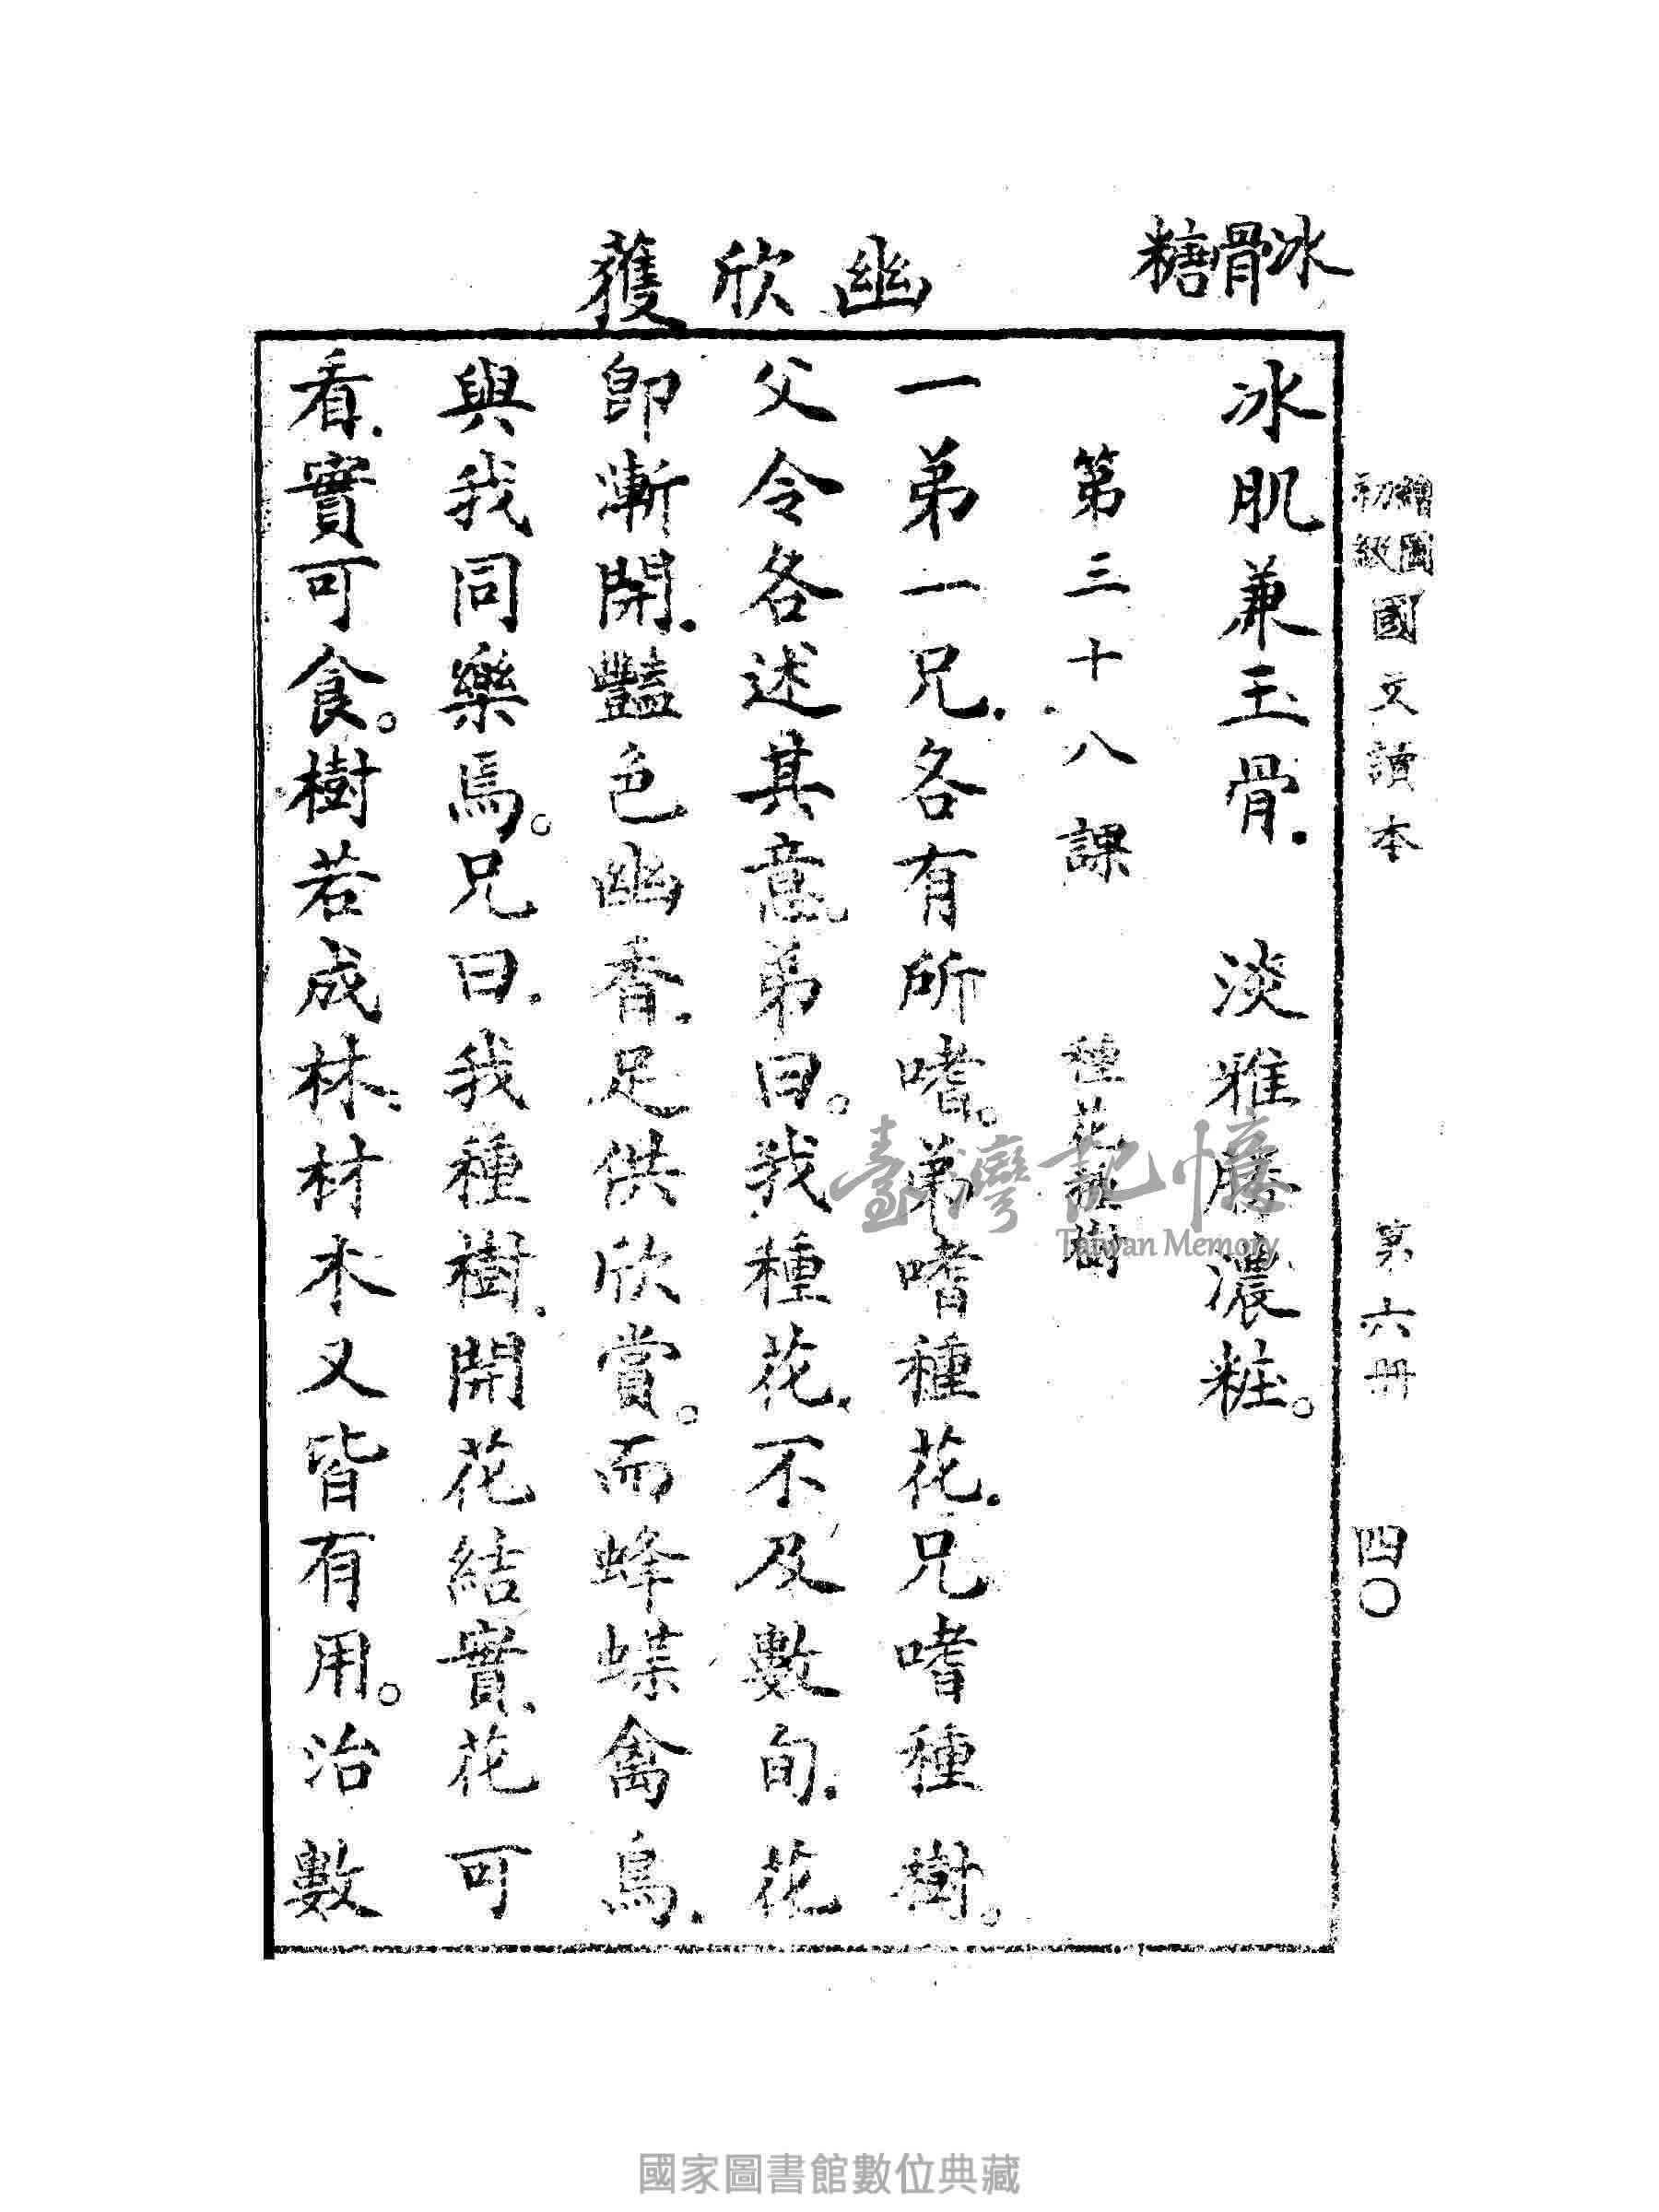 冰骨糖
幽欣獲
繪圖初級國文讀本　第六冊　四〇
冰肌兼玉骨．淡雅勝濃粧。
第三十八課　種花種樹
一弟一兄．各有所嗜。弟嗜種花．兄嗜種樹。
父令各述其意弟曰。我種花．不及數旬．花
即漸開．豔色幽香．足供欣賞。而蜂蝶禽鳥．
與我同樂焉。兄曰．我種樹．開花結實．花可
看．實可食。樹若成林．材木又皆有用。治數
臺灣記憶
Taiwan Memory
國家圖書館數位典藏